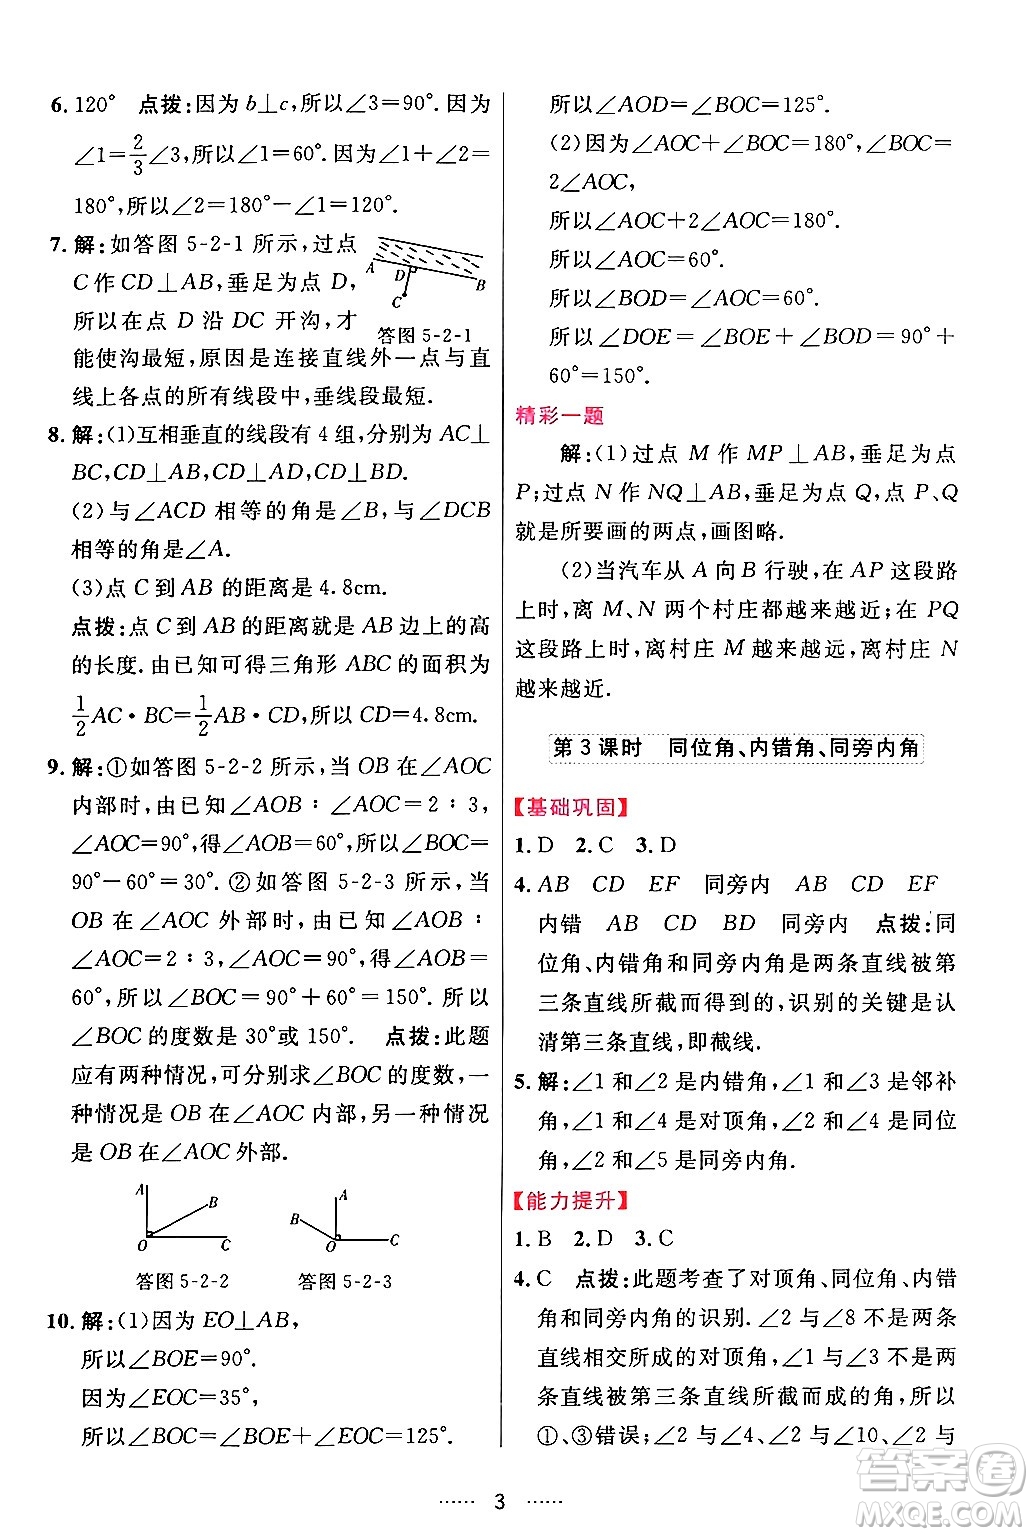 6. 120° 点拨:因为 b⊥c,所以∠3=90°.因为
∠1=2/3∠3,所以∠1=60°.因为∠1+∠2=
180°,所以∠2=180°-∠1=120°.
7. 解:如答图 5-2-1 所示,过点
C 作 CD⊥AB,垂足为点 D,
所以在点 D 沿 DC 开沟,才
能使沟最短,原因是连接直线外一点与直
线上各点的所有线段中,垂线段最短.
A D B
C
答图 5-2-1
8. 解:(1)互相垂直的线段有 4 组,分别为 AC⊥
BC,CD⊥AB,CD⊥AD,CD⊥BD.
(2)与∠ACD 相等的角是∠B,与∠DCB
相等的角是∠A.
(3)点 C 到 AB 的距离是 4.8cm.
点拨:点 C 到 AB 的距离就是 AB 边上的高
的长度.由已知可得三角形 ABC 的面积为
1/2AC·BC=1/2AB·CD,所以 CD=4.8cm.
9. 解:①如答图 5-2-2 所示,当 OB 在∠AOC
内部时,由已知∠AOB∶∠AOC=2∶3,
∠AOC=90°,得∠AOB=60°,所以∠BOC=
90°-60°=30°.②如答图 5-2-3 所示,当
OB 在∠AOC 外部时,由已知∠AOB∶
∠AOC=2∶3,∠AOC=90°,得∠AOB=
60°,所以∠BOC=90°+60°=150°.所以
∠BOC 的度数是 30°或 150°. 点拨:此题
应有两种情况,可分别求出∠BOC 的度数,一
种情况是 OB 在∠AOC 内部,另一种情况
是 OB 在∠AOC 外部.
A B O C
答图 5-2-2
A B O C
答图 5-2-3
10. 解:(1)因为 EO⊥AB,
所以∠BOE=90°.
因为∠EOC=35°,
所以∠BOC=∠BOE+∠EOC=125°.
所以∠AOD=∠BOC=125°.
(2)因为∠AOC+∠BOC=180°,∠BOC=
2∠AOC,
所以∠AOC+2∠AOC=180°.
所以∠AOC=60°.
所以∠BOD=∠AOC=60°.
所以∠DOE=∠BOE+∠BOD=90°+
60°=150°.
精彩一题
解:(1)过点 M 作 MP⊥AB,垂足为点
P;过点 N 作 NQ⊥AB,垂足为点 Q,点 P、Q
就是所要画的两点,画图略.
(2)当汽车从 A 向 B 行驶,在 AP 这段路
上时,离 M、N 两个村庄都越来越近;在 PQ
这段路上时,离村庄 M 越来越远,离村庄 N
越来越近.
第 3 课时 同位角、内错角、同旁内角
【基础巩固】
1. D 2. C 3. D
4. AB CD EF 同旁内 AB CD EF
内错 AB CD BD 同旁内 点拨:同
位角、内错角和同旁内角是两条直线被第
三条直线所截而得到的,识别的关键是认
清第三条直线,即截线.
5. 解:∠1 和∠2 是内错角,∠1 和∠3 是邻补
角,∠1 和∠4 是对顶角,∠1 和∠5 是同位
角,∠2 和∠5 是同旁内角.
【能力提升】
1. B 2. D 3. C
4. C 点拨:此题考查了对顶角、同位角、内错
角和同旁内角的识别.∠2 与∠8 不是两条
直线相交所成的对顶角,∠1 与∠3 不是两
条直线被第三条直线所截而成的角,所以
①、③错误;∠2 与∠4、∠2 与∠10、∠2 与
······ 3 ······
答案圈
MXQE.COM